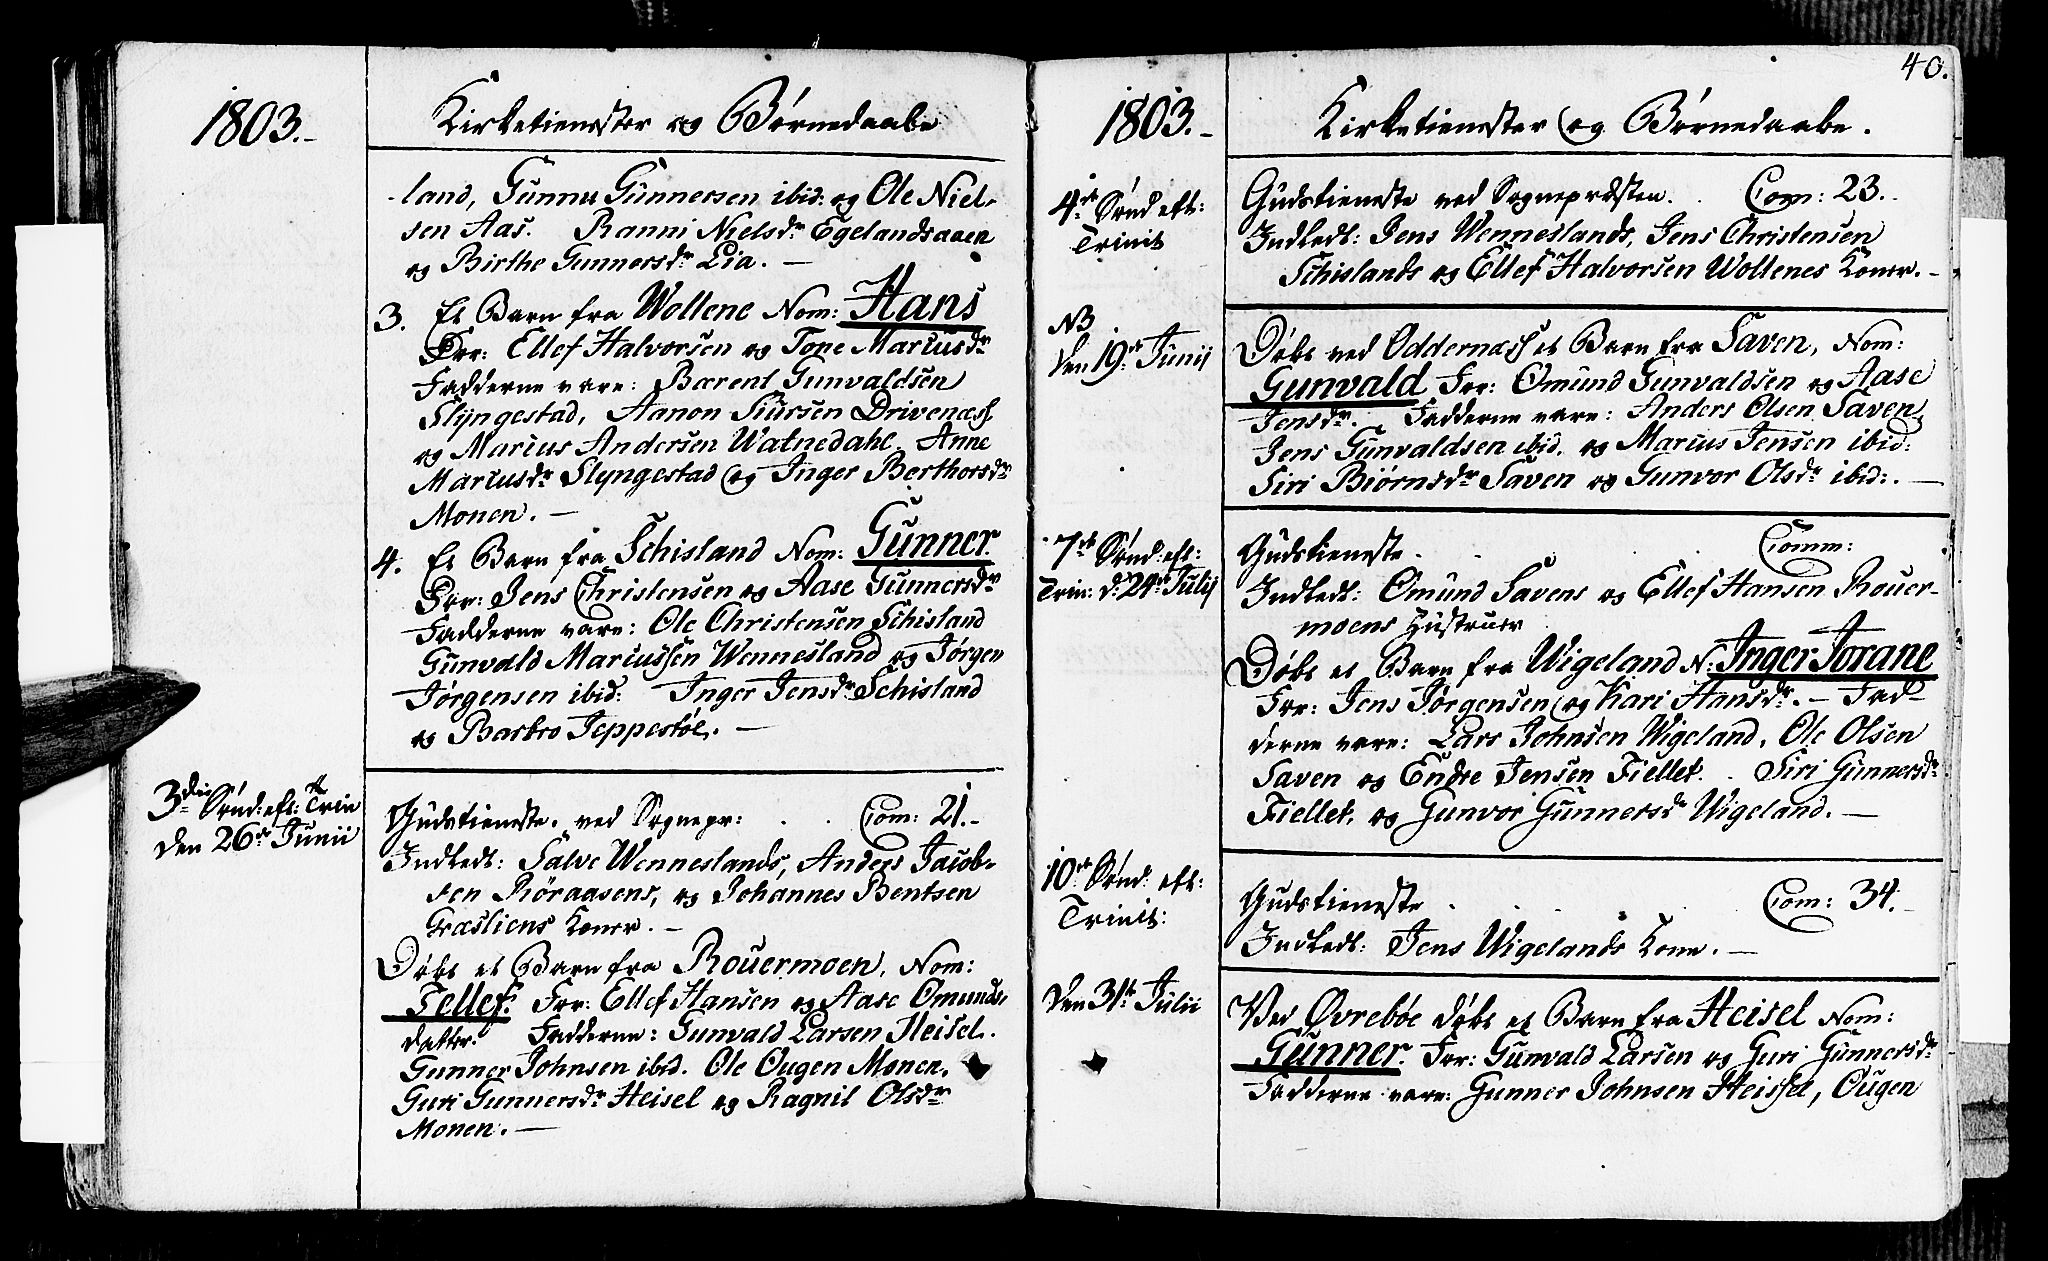 1803.
Kirketienester og Børnedaabe
land, Gunnu Gunnersen ibid: og Ole Niel-
sen Aas. Ranni Nielsdr Egelandsaaen
og Birthe Gunnersdr Lia. —
3. Et Barn fra Wollene Nom: Hans
For: Ellef Halvorsen og Tone Mariusdr
Fadderne vare: Barent Gunvaldsen
Slyngestad, Aanon Siursen Drivenæs
og Marius Andersen Watnedahl. Anne
Mariusdr Slyngestad og Inger Berthorsdr
Monen. —
4. Et Barn fra Schisland Nom: Gunner.
For: Jens Christensen og Aase Gunnersdr
Fadderne vare: Ole Christensen Schisland
Gunvald Mariussen Wennesland og Jørgen
Jørgensen ibid: Inger Jensdr Schisland
og Barbro Jeppestøl. —
3die Sønd: eft: Trin
den 26de Junii
Gudstieneste. ved Sognepr: . . Com: 21. —
Indledt: Salve Wenneslands, Anders Jacob-
sen Røraasens, og Johannes Bentsen
Græsliens Koner. —
Døbt et Barn fra Rouermoen, Nom:
Tellef. For: Ellef Hansen og Aase Omunds-
datter. Fadderne: Gunvald Larsen Heisel.
Gunner Johnsen ibid. Ole Ougen Monen.
Guri Gunnersdr Heisel og Ragnil Olsdr
Monen. —
40.
1803. —
Kirketienester og Børnedaabe.
4de Sønd eft:
Trinit
Gudstieneste ved Sognepræsten. . Com: 23.
Indledt: Jens Wenneslands, Jens Christensen
Schislands og Ellef Halvorsen Wollenes Koner. —
NB
den 19de Junij
Døbt ved Oddernæs et Barn fra Saven, Nom:
Gunvald For: Omund Gunvaldsen og Aase
Jensdr. Fadderne vare: Anders Olsen Saven,
Jens Gunvaldsen ibid. og Marius Jensen ibid:
Siri Biørnsdr Saven og Gunvor Olsdr ibid:. —
7de Sønd: eft:
Trin: d: 24de Julij
Gudstieneste. . . . Comm:
Indledt: Omund Savens og Ellef Hansen Rouer-
moens Hustruer
Døbt et Barn fra Wigeland N: Inger Jorane
For: Jens Jørgensen og Kari Hansdr. — Fad-
derne vare: Lars Johnsen Wigeland, Ole Olsen
Saven og Endre Jensen Fiellet. . Siri Gunnersdr
Fiellet, og Gunvor Gunnersdr Wigeland. —
10de Sønd: eft:
Trinit:
Gudstieneste . . . . Com: 34. —
Indledt: Jens Wigelands Kone. —
den 31te Julii
Ved Øvrebøe døbt et Barn fra Heisel Nom:
Gunner. For: Gunvald Larsen og Guri Gunnersdr
Fadderne vare: Gunner Johnsen Heissel, Ougen